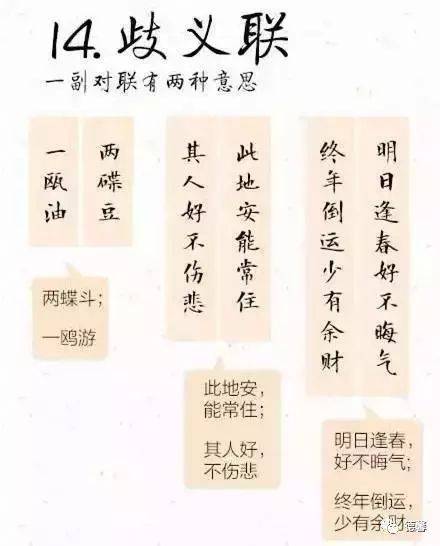 14. 歧义联
一副对联有两种意思
两碟豆
一瓯油
两蝶斗;
一鸥游
此地安能常住
其人好不伤悲
此地安,
能常住;
其人好,
不伤悲
明日逢春好不晦气
终年倒运少有余财
明日逢春,
好不晦气;
终年倒运,
少有余财
德馨